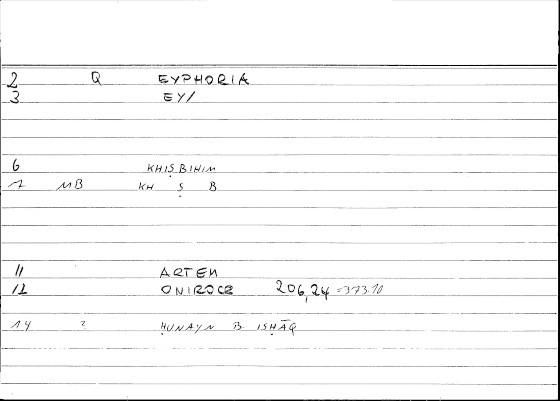 2 Q EYPHORIA
3 EY/
6 KHIṢBIHIM
7 MB KH Ṣ B
11 ARTEM
12 ONIROCR 206,24 =373.10
14 2 ḤUNAYN B. ISḤĀQ